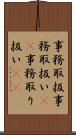 事務取扱事
務取扱い
事務取り
扱い